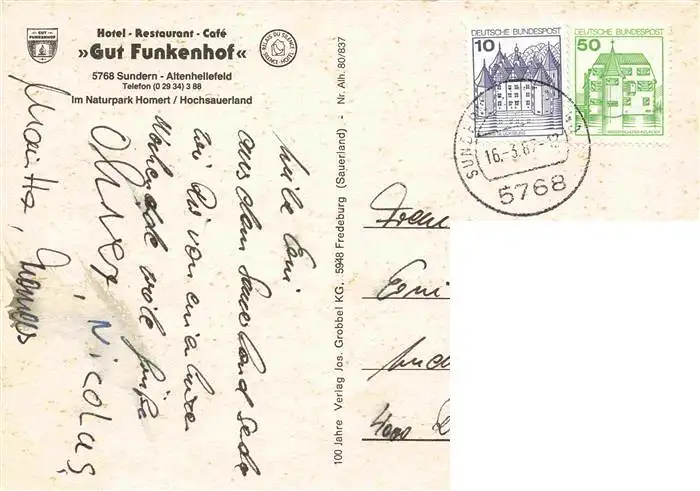 GUT
FUNKENHOF
Hotel - Restaurant - Café
»Gut Funkenhof«
5768 Sundern - Altenhellefeld
Telefon (0 29 34) 3 88
Im Naturpark Homert / Hochsauerland
RELAIS DU SILENCE
SILENCE-HOTEL
100 Jahre Verlag Jos. Grobbel KG. 5948 Fredeburg (Sauerland) - Nr. Alh. 80/837
DEUTSCHE BUNDESPOST
10
DEUTSCHE BUNDESPOST
50
16.-3.87-12
5768
Liebe Omi
aus dem Sauerland
wir von
Wochenende viele Grüße
Oliver, Nicolas,
Maritta, Thomas
Frau
4000